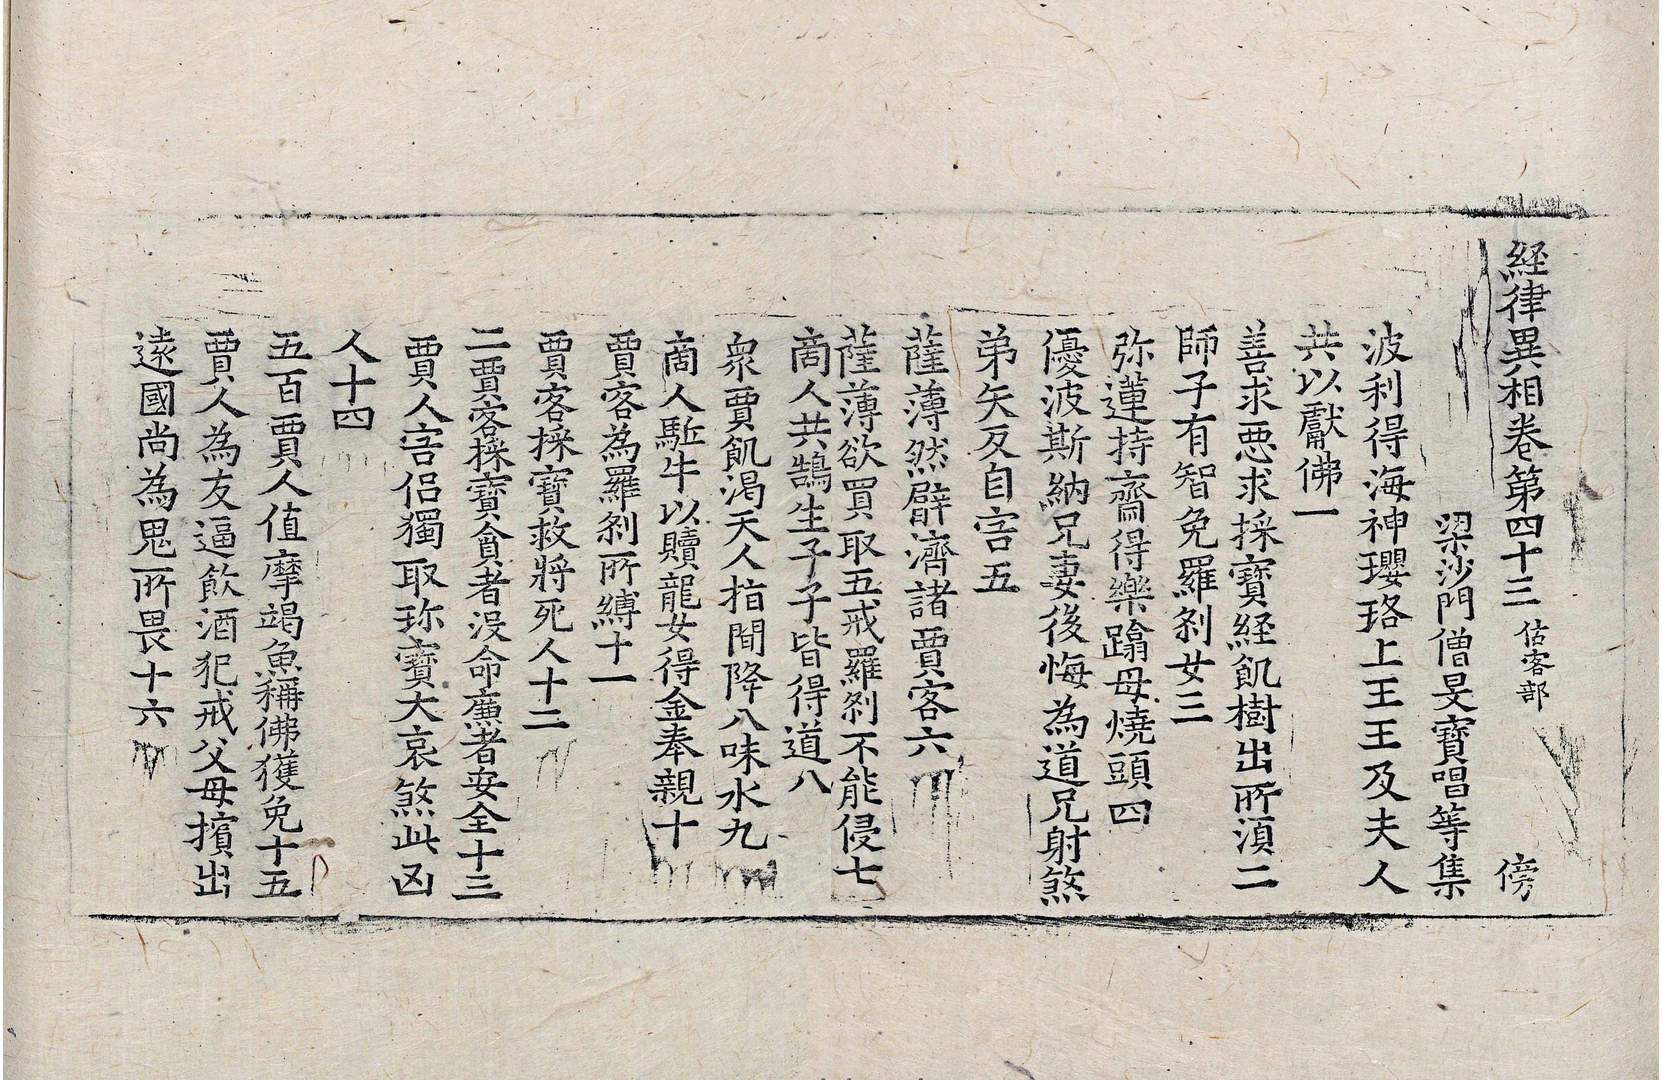 経律異相卷第四十三 估客部 傍
梁沙門僧旻寶唱等集
波利得海神瓔珞上王王及夫人
共以獻佛一
善求惡求採寶経飢樹出所須二
師子有智免羅剎女三
弥蓮持齋得樂蹋母燒頭四
優波斯納兄妻後悔為道兄射煞
弟矢反自害五
薩薄然臂濟諸賈客六
薩薄欲買取五戒羅剎不能侵七
商人共鵠生子子皆得道八
衆賈飢渴天人指間降八味水九
商人駈牛以贖龍女得金奉親十
賈客為羅剎所縛十一
賈客採寶救將死人十二
二賈客採寶貪者没命廉者安全十三
賈人害侣獨取珎寶大哀煞此凶
人十四
五百賈人值摩竭魚稱佛獲免十五
賈人為友逼飲酒犯戒父母擯出
遠國尚為鬼所畏十六